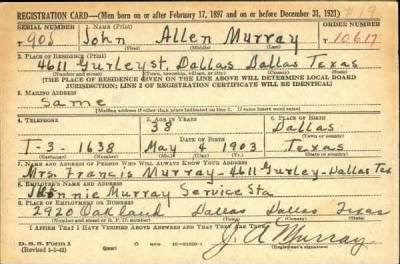 REGISTRATION CARD—(Men born on or after February 17, 1897 and on or before December 31, 1921)
SERIAL NUMBER 1. NAME (Print) ORDER NUMBER
John Allen Murray 10617
2. PLACE OF RESIDENCE (Print)
4611 Gurley st. Dallas Dallas Texas
(Number and street) (Town, township, village, or city) (County) (State)
[THE PLACE OF RESIDENCE GIVEN ON THE LINE ABOVE WILL DETERMINE LOCAL BOARD
JURISDICTION; LINE 2 OF REGISTRATION CERTIFICATE WILL BE IDENTICAL]
3. MAILING ADDRESS
Same
[Mailing address if other than place indicated on line 2. If same insert word same]
4. TELEPHONE 5. AGE IN YEARS 6. PLACE OF BIRTH
38 Dallas
DATE OF BIRTH (Town or county)
T-3-1638 May 4 1903 Texas
(Exchange) (Number) (Mo.) (Day) (Yr.) (State or country)
7. NAME AND ADDRESS OF PERSON WHO WILL ALWAYS KNOW YOUR ADDRESS
Mrs. Francis Murray-4611 Gurley-Dallas Tex
8. EMPLOYER'S NAME AND ADDRESS
Murray Service Sta
9. PLACE OF EMPLOYMENT OR BUSINESS
2920 Oakland Dallas Dallas Texas
(Number and street or R. F. D. number) (Town) (County) (State)
I AFFIRM THAT I HAVE VERIFIED ABOVE ANSWERS AND THAT THEY ARE TRUE.
D. S. S. Form 1
(Revised 1-1-42) (over)
J. A Murray